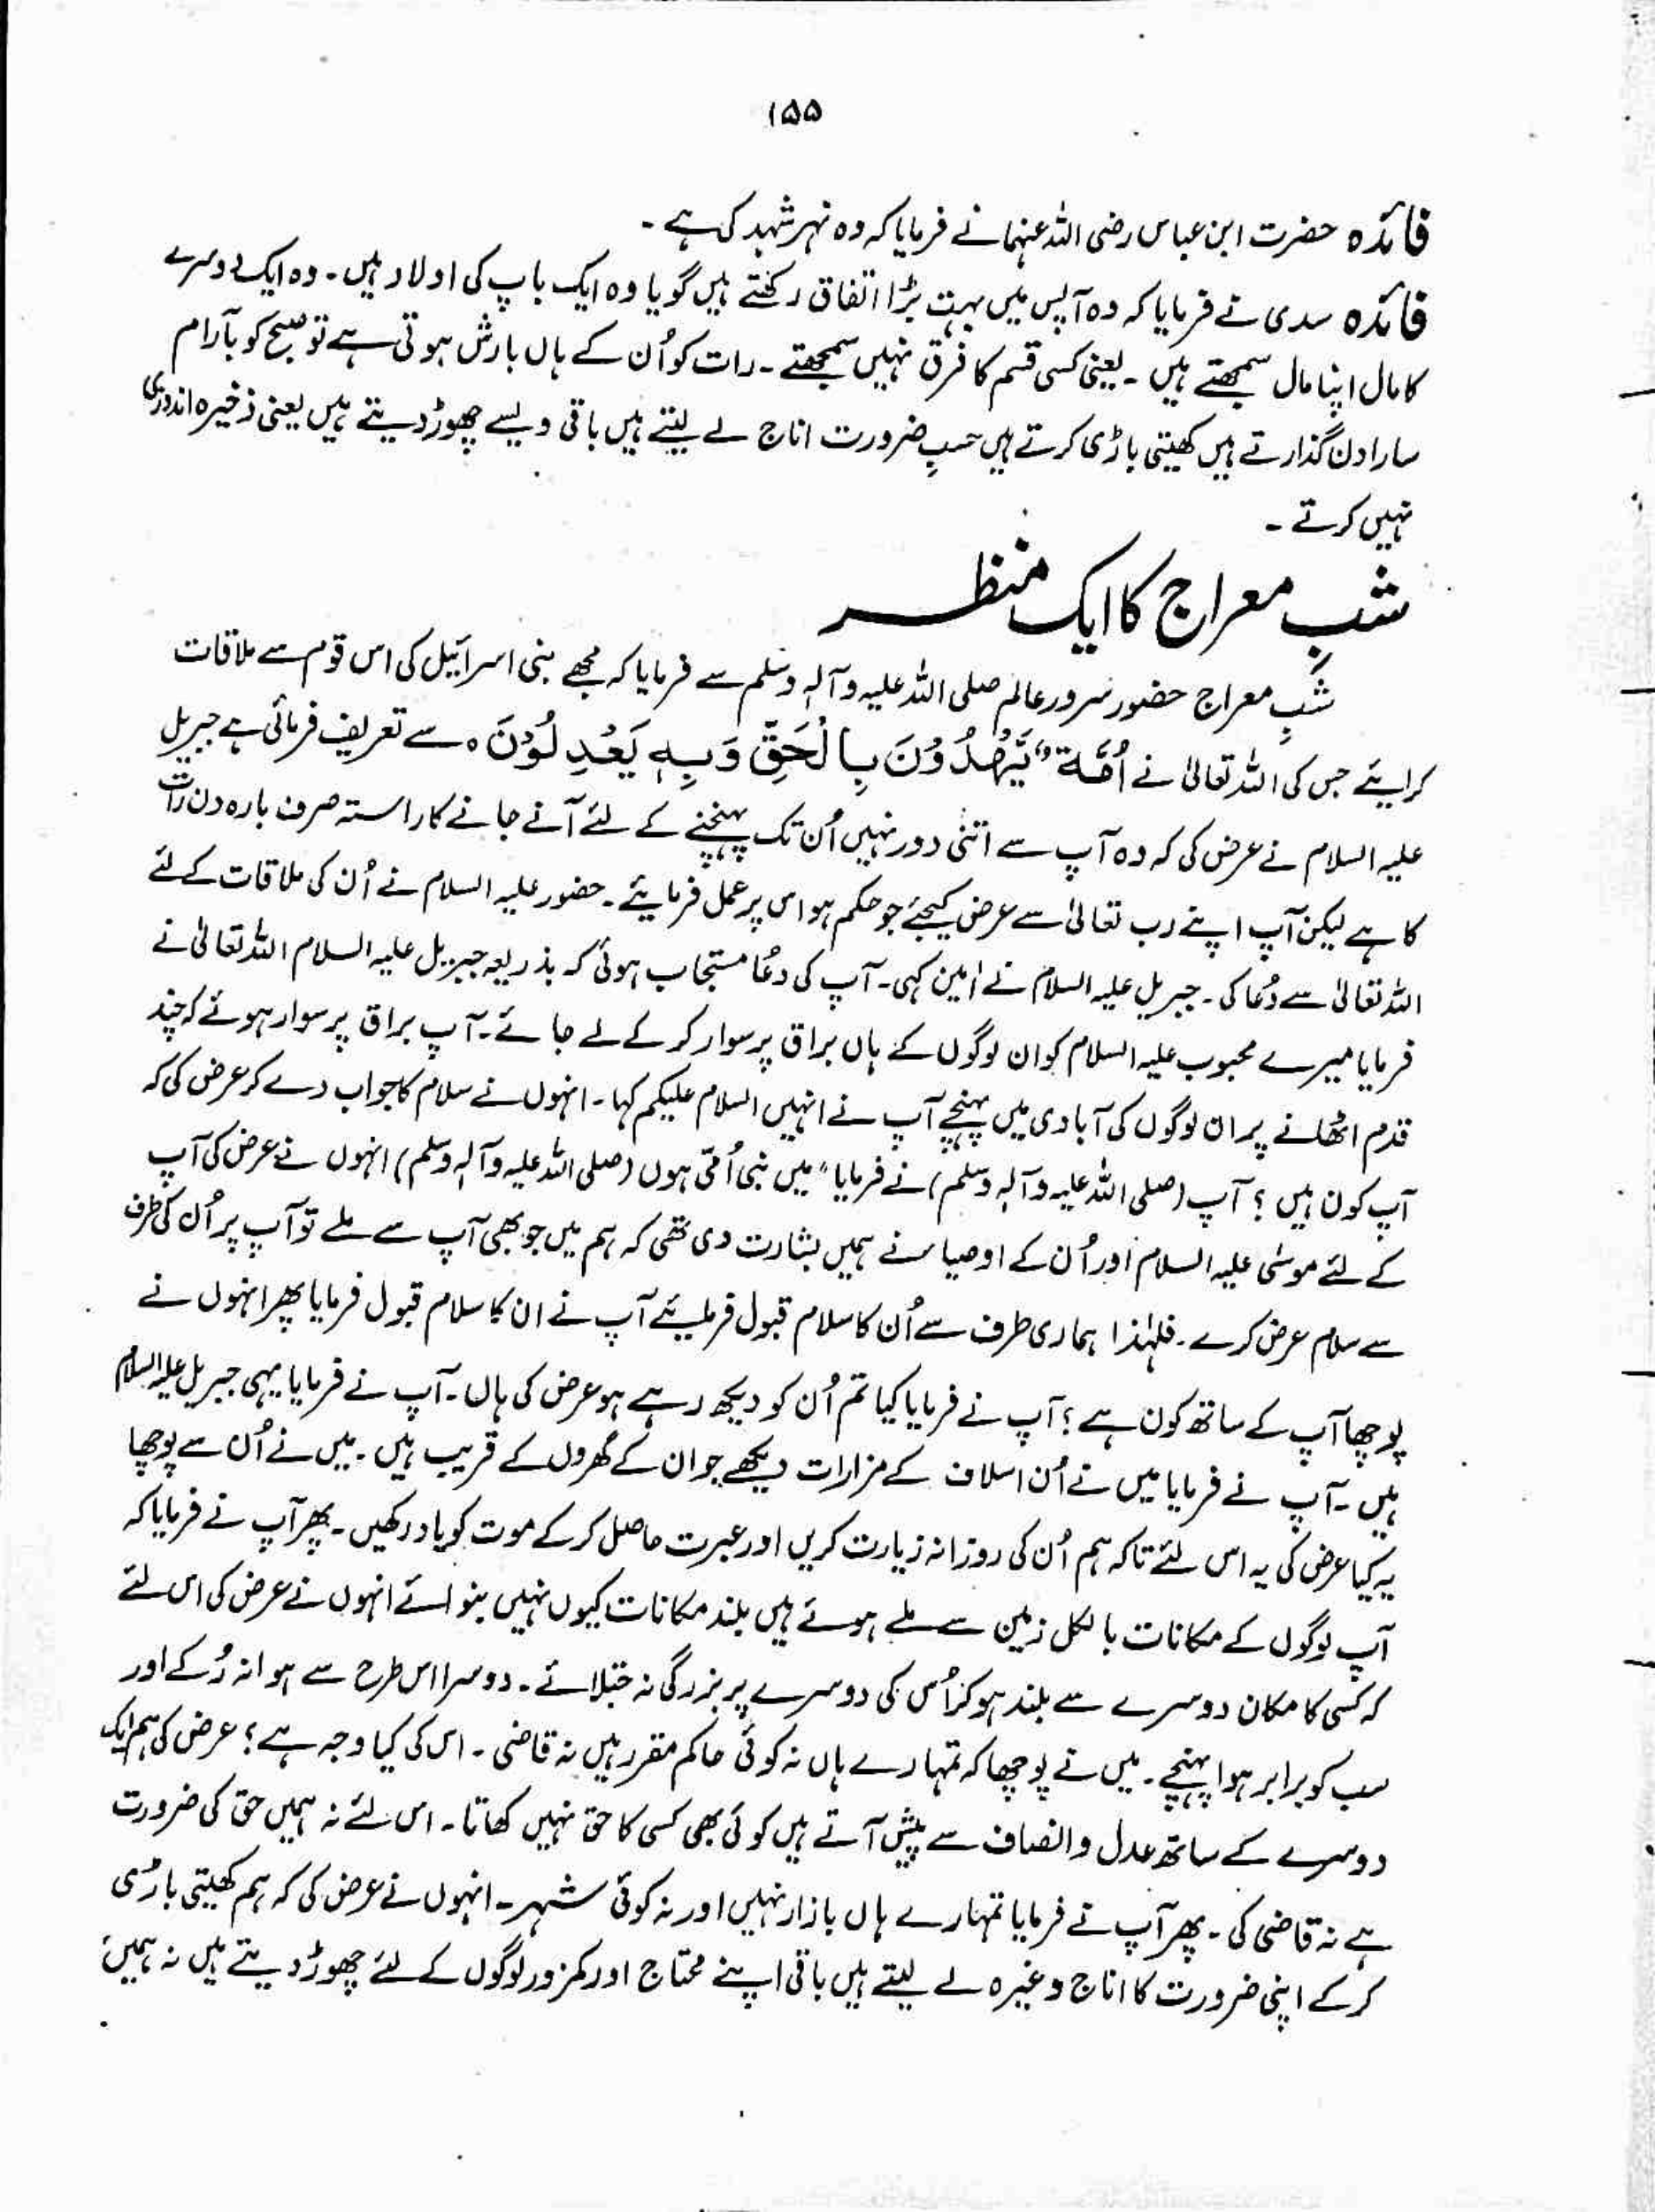 ۱۵۵
فائدہ حضرت ابن عباس رضی اللہ عنہما نے فرمایا کہ وہ نہر شہد کی ہے ۔
فائدہ سدی نے فرمایا کہ وہ آپس میں بہت بڑا اتفاق رکھتے ہیں گویا وہ ایک باپ کی اولاد ہیں ۔ وہ ایک دوسرے
کا مال اپنا مال سمجھتے ہیں ۔ یعنی کسی قسم کا فرق نہیں سمجھتے ۔ رات کو اُن کے ہاں بارش ہوتی ہے تو صبح کو بآرام
سارا دن گذارتے ہیں کھیتی باڑی کرتے ہیں حسبِ ضرورت اناج لے لیتے ہیں باقی ویسے چھوڑ دیتے ہیں یعنی ذخیرہ اندوزی
نہیں کرتے ۔
شبِ معراج کا ایک منظر
شبِ معراج حضور سرور عالم صلی اللہ علیہ وآلہٖ وسلم سے فرمایا کہ مجھے بنی اسرائیل کی اس قوم سے ملاقات
کرایئے جس کی اللہ تعالیٰ نے اُمَّۃٌ یَّہْدُوْنَ بِالْحَقِّ وَبِہٖ یَعْدِلُوْنَ ہ سے تعریف فرمائی ہے جبریل
علیہ السلام نے عرض کی کہ وہ آپ سے اتنی دور نہیں اُن تک پہنچنے کے لئے آنے جانے کا راستہ صرف بارہ دن رات
کا ہے لیکن آپ اپنے رب تعالیٰ سے عرض کیجئے جو حکم ہو اس پر عمل فرمایئے ۔ حضور علیہ السلام نے اُن کی ملاقات کے لئے
اللہ تعالیٰ سے دُعا کی ۔ جبریل علیہ السلام نے اٰمین کہی ۔ آپ کی دعُا مستجاب ہوئی کہ بذریعہ جبریل علیہ السلام اللہ تعالیٰ نے
فرمایا میرے محبوب علیہ السلام کو ان لوگوں کے ہاں براق پر سوار کر کے لے جائے ۔ آپ براق پر سوار ہوئے کہ چند
قدم اٹھانے پر ان لوگوں کی آبادی میں پہنچے آپ نے انہیں السلام علیکم کہا ۔ انہوں نے سلام کا جواب دے کر عرض کی کہ
آپ کون ہیں ؟ آپ (صلی اللہ علیہ وآلہٖ وسلم) نے فرمایا " میں نبی اُمّی ہوں (صلی اللہ علیہ وآلہٖ وسلم) انہوں نے عرض کی آپ
کے لئے موسٰی علیہ السلام اور اُن کے اوصیا نے ہمیں بشارت دی تھی کہ ہم میں جو بھی آپ سے ملے تو آپ پر اُن کی طرف
سے سلام عرض کرے ۔ فلہٰذا ہماری طرف سے اُن کا سلام قبول فرمایئے آپ نے ان کا سلام قبول فرمایا پھر انہوں نے
پوچھا آپ کے ساتھ کون ہے ؟ آپ نے فرمایا کیا تم اُن کو دیکھ رہے ہو عرض کی ہاں ۔ آپ نے فرمایا یہی جبریل علیہ السلام
ہیں ۔ آپ نے فرمایا میں نے اُن اسلاف کے مزارات دیکھے جو ان کے گھروں کے قریب ہیں ۔ میں نے اُن سے پوچھا
یہ کیا عرض کی یہ اس لئے تاکہ ہم اُن کی روزانہ زیارت کریں اور عبرت حاصل کر کے موت کو یاد رکھیں ۔ پھر آپ نے فرمایا کہ
آپ لوگوں کے مکانات بالکل زمین سے ملے ہوئے ہیں بلند مکانات کیوں نہیں بنوائے انہوں نے عرض کی اس لئے
کہ کسی کا مکان دوسرے سے بلند ہو کر اُس کی دوسرے پر بزرگی نہ جتلائے ۔ دوسرا اس طرح سے ہوا نہ رُکے اور
سب کو برابر ہوا پہنچے ۔ میں نے پوچھا کہ تمہارے ہاں نہ کوئی حاکم مقرر ہیں نہ قاضی ۔ اس کی کیا وجہ ہے ؟ عرض کی ہم ایک
دوسرے کے ساتھ عدل و انصاف سے پیش آتے ہیں کوئی بھی کسی کا حق نہیں کھاتا ۔ اس لئے نہ ہمیں حق کی ضرورت
ہے نہ قاضی کی ۔ پھر آپ نے فرمایا تمہارے ہاں بازار نہیں اور نہ کوئی شہر ۔ انہوں نے عرض کی کہ ہم کھیتی باڑی
کر کے اپنی ضرورت کا اناج وغیرہ لے لیتے ہیں باقی اپنے محتاج اور کمزور لوگوں کے لئے چھوڑ دیتے ہیں نہ ہمیں